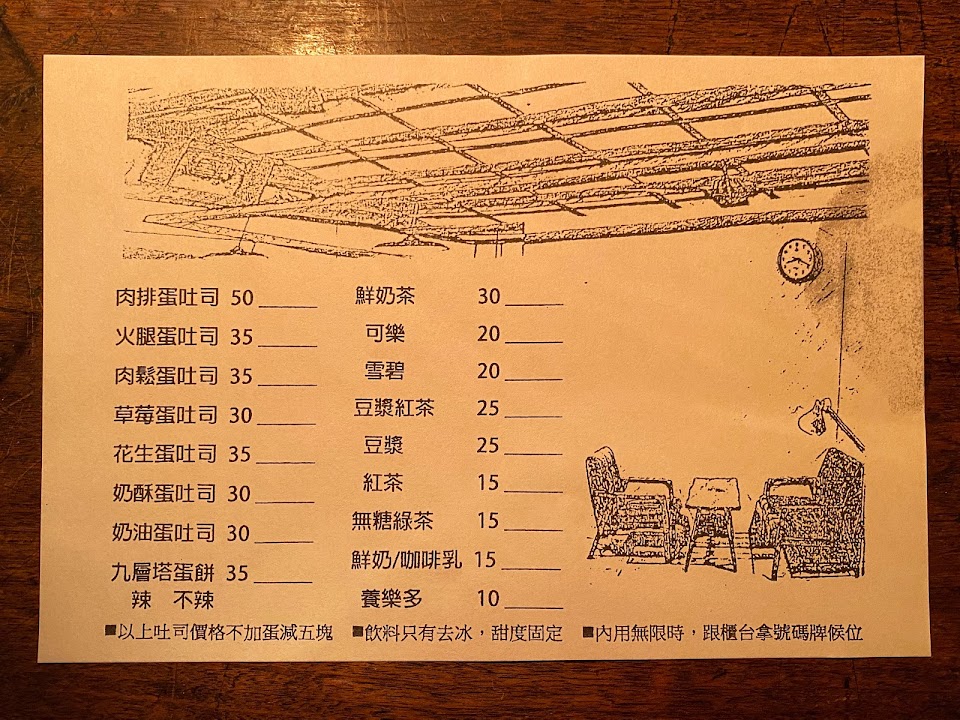 肉排蛋吐司 50 _____
火腿蛋吐司 35 _____
肉鬆蛋吐司 35 _____
草莓蛋吐司 30 _____
花生蛋吐司 35 _____
奶酥蛋吐司 30 _____
奶油蛋吐司 30 _____
九層塔蛋餅 35 _____
辣 不辣
鮮奶茶 30 _____
可樂 20 _____
雪碧 20 _____
豆漿紅茶 25 _____
豆漿 25 _____
紅茶 15 _____
無糖綠茶 15 _____
鮮奶/咖啡乳 15 _____
養樂多 10 _____
■以上吐司價格不加蛋減五塊 ■飲料只有去冰，甜度固定 ■內用無限時，跟櫃台拿號碼牌候位